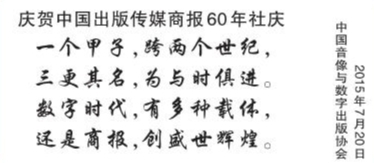 庆贺中国出版传媒商报60年社庆
一个甲子，跨两个世纪，
三更其名，为与时俱进。
数字时代，有多种载体，
还是商报，创盛世辉煌。
中国音像与数字出版协会
2015年7月20日